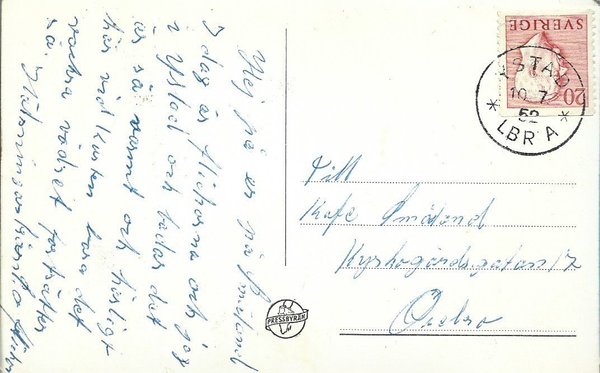 Hej på er på Småland
I dag är flickorna och jag
i Ystad och badar det
är så varmt och härligt
här vid kusten bara det
vackra vädret fortsätter
så.
Till
Kafe Småland
Kyrkogårdsgatan 17
Örebro
SVERIGE
20
YSTAD
10.7.
52
* LBR A *
PRESSBYRÅN